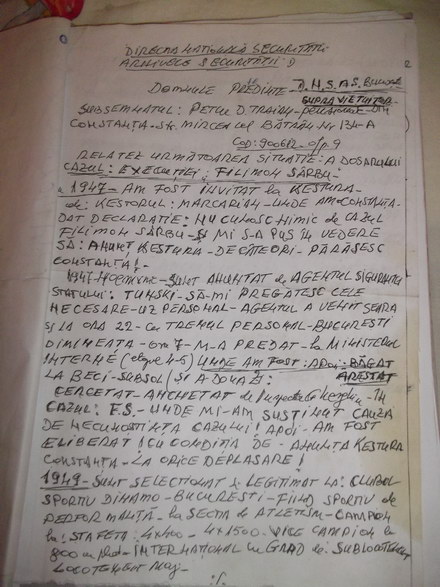 DIRECȚIA NAȚIONALĂ SECURITĂȚII
ARHIVELE SECURITĂȚII
DOMNULE PREȘEDINTE
SUPRAVIEȚUITOR
SUBSEMNATUL: PETCU D. TRAIAN - PENSIONAR - DIN
CONSTANȚA - Str. MIRCEA cel BĂTRÂN Nr 134-A
COD: 900612 - of.p. 9
RELATEZ URMĂTOAREA SITUAȚIE: A DOSARULUI
CAZUL: EXECUȚIEI: FILIMON SÂRBU:
1947 - AM FOST INVITAT la KESTURA -
de: KESTORUL: MARCARIAN - UNDE AM CONSTANȚA -
DAT DECLARAȚIE: NU CUNOSC NIMIC de CAZUL
FILIMON SÂRBU - ȘI MI S-A PUS ÎN VEDERE
SĂ: ANUNȚ KESTURA - DE CÂTE ORI - PĂRĂSESC
CONSTANȚA!
1947 - SUNT ANUNȚAT de AGENTUL SIGURANȚA
STATULUI: TUNSKI - SĂ-MI PREGĂTESC CELE
NECESARE - UZ PERSONAL - AGENTUL A VENIT SEARA
ȘI LA ORA 22 - cu TRENUL PERSONAL - BUCUREȘTI
DIMINEAȚA - ora 7 - M-A PREDAT - la MINISTERUL
INTERNE (etape 4-5) UNDE AM FOST: APOI: BĂGAT
ARESTAT
LA BECI - SUBSOL / ȘI A DOUA ZI:
CERCETAT - ANCHETAT de - ÎN
CAZUL: F.S. - UNDE MI-AM SUSȚINUT CAUZA
DE NECUNOȘTINȚA CAZULUI! APOI - AM FOST
ELIBERAT! CU CONDIȚIA DE - ANUNȚA KESTURA
CONSTANȚA - LA ORICE DEPLASARE!
1949 - SUNT SELECȚIONAT & LEGITIMAT LA: CLUBUL
SPORTIV DINAMO - BUCUREȘTI - FIIND SPORTIV de
PERFORMANȚĂ - la SECȚIA de ATLETISM - CAMPION
la: ȘTAFETĂ: 4x400 - 4x1500. VICE CAMPION la
800 m plat - INTERNAȚIONAL cu GRAD de: SUBLOCOTENENT
LOCOTENENT Maj -